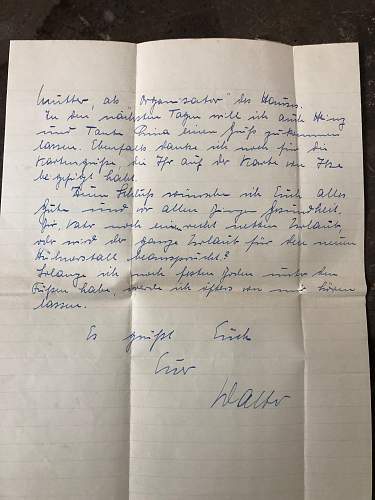 Mutter, als "Organisator" des Hauses.
In den nächsten Tagen will ich auch Heinz
und Tante Anna einen Gruß zukommen
lassen. Ebenfalls danke ich noch für die
Kartengrüße die Ihr auf der Karte von Ilse
beigefügt habt.
Zum Schluß wünsche ich Euch alles
Gute und vor allen Dingen Gesundheit.
Dir, Vater noch einen recht netten Urlaub,
oder wird der ganze Urlaub für den neuen
Hühnerstall beansprucht?
Solange ich noch festen Boden unter den
Füßen habe, werde ich öfters von mir hören
lassen.
Es grüßt Euch
Euer
Walter